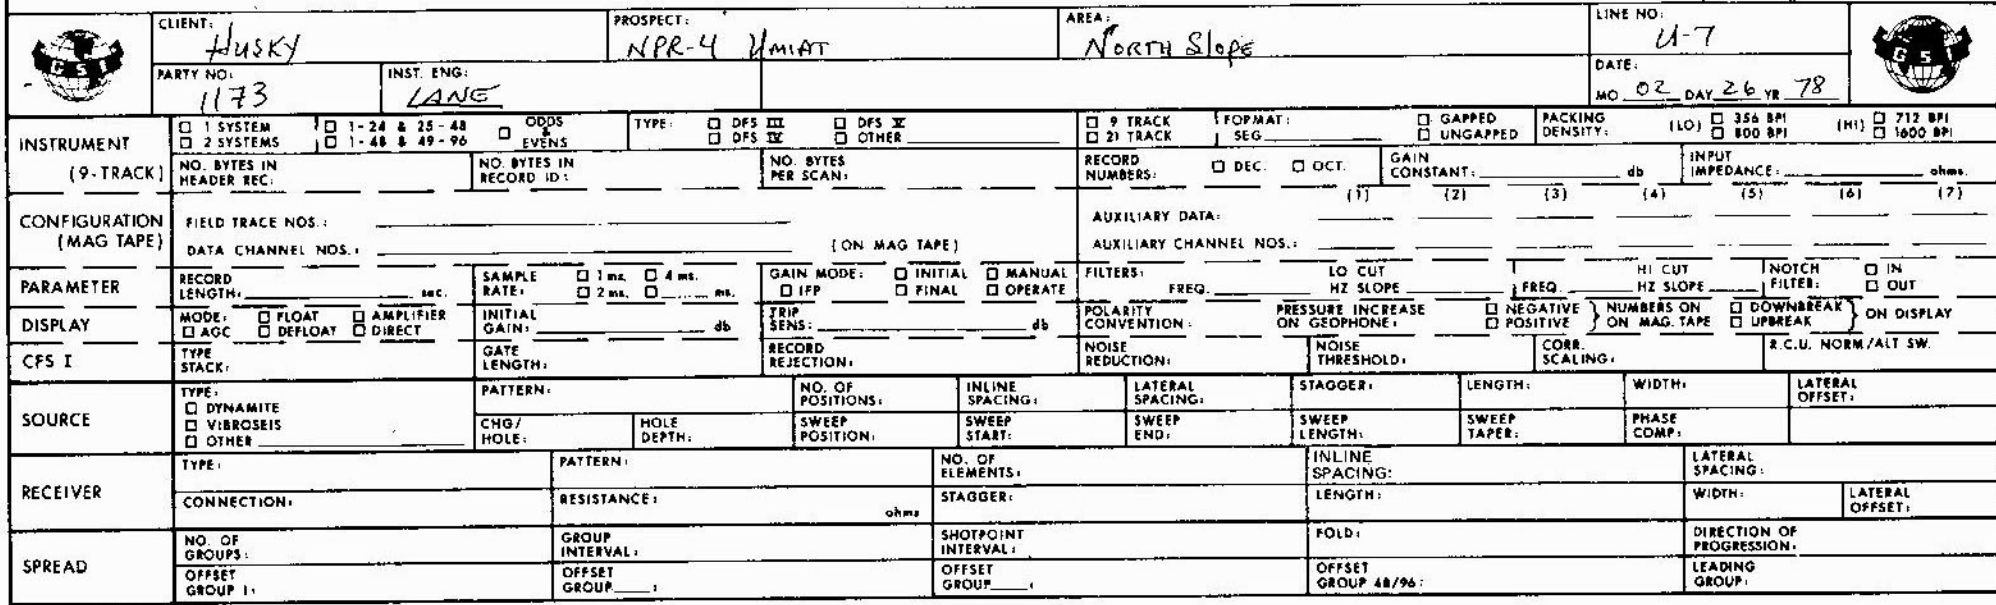 CLIENT: HUSKY PROSPECT: NPR-4 UMIAT AREA: NORTH SLOPE LINE NO: U-7
GSI GSI
PARTY NO: 1173 INST. ENG: LANE DATE: MO. 02 DAY 26 YR 78
INSTRUMENT (9-TRACK)
☐ 1 SYSTEM ☐ 1-24 & 25-48 ☐ ODDS & EVENS TYPE: ☐ DFS III ☐ DFS V ☐ 9 TRACK FORMAT: ☐ GAPPED PACKING DENSITY: (LO) ☐ 356 BPI (HI) ☐ 712 BPI
☐ 2 SYSTEMS ☐ 1-48 & 49-96 ☐ DFS IV ☐ OTHER ☐ 21 TRACK SEG ☐ UNGAPPED ☐ 800 BPI ☐ 1600 BPI
NO. BYTES IN HEADER REC: NO. BYTES IN RECORD ID: NO. BYTES PER SCAN: RECORD NUMBERS: ☐ DEC. ☐ OCT. GAIN CONSTANT: db INPUT IMPEDANCE: ohms.
CONFIGURATION (MAG TAPE)
(1) (2) (3) (4) (5) (6) (7)
FIELD TRACE NOS.: AUXILIARY DATA:
DATA CHANNEL NOS.: (ON MAG TAPE) AUXILIARY CHANNEL NOS.:
PARAMETER
RECORD LENGTH: sec. SAMPLE RATE: ☐ 1 ms. ☐ 4 ms. ☐ 2 ms. ☐ ms. GAIN MODE: ☐ INITIAL ☐ MANUAL ☐ IFP ☐ FINAL ☐ OPERATE FILTERS: LO CUT FREQ. HZ SLOPE HI CUT FREQ. HZ SLOPE NOTCH FILTER: ☐ IN ☐ OUT
DISPLAY
MODE: ☐ FLOAT ☐ AMPLIFIER ☐ AGC ☐ DEFLOAT ☐ DIRECT INITIAL GAIN: db TRIP SENS: db POLARITY CONVENTION: PRESSURE INCREASE ON GEOPHONE: ☐ NEGATIVE ☐ POSITIVE } NUMBERS ON ON MAG. TAPE ☐ DOWNBREAK ☐ UPBREAK } ON DISPLAY
CFS I
TYPE STACK: GATE LENGTH: RECORD REJECTION: NOISE REDUCTION: NOISE THRESHOLD: CORR. SCALING: R.C.U. NORM/ALT SW.
SOURCE
TYPE: ☐ DYNAMITE ☐ VIBROSEIS ☐ OTHER
PATTERN: NO. OF POSITIONS: INLINE SPACING: LATERAL SPACING: STAGGER: LENGTH: WIDTH: LATERAL OFFSET:
CHG/HOLE: HOLE DEPTH: SWEEP POSITION: SWEEP START: SWEEP END: SWEEP LENGTH: SWEEP TAPER: PHASE COMP:
RECEIVER
TYPE: PATTERN: NO. OF ELEMENTS: INLINE SPACING: LATERAL SPACING:
CONNECTION: RESISTANCE: ohms STAGGER: LENGTH: WIDTH: LATERAL OFFSET:
SPREAD
NO. OF GROUPS: GROUP INTERVAL: SHOTPOINT INTERVAL: FOLD: DIRECTION OF PROGRESSION:
OFFSET GROUP 1: OFFSET GROUP : OFFSET GROUP : OFFSET GROUP 48/96: LEADING GROUP: